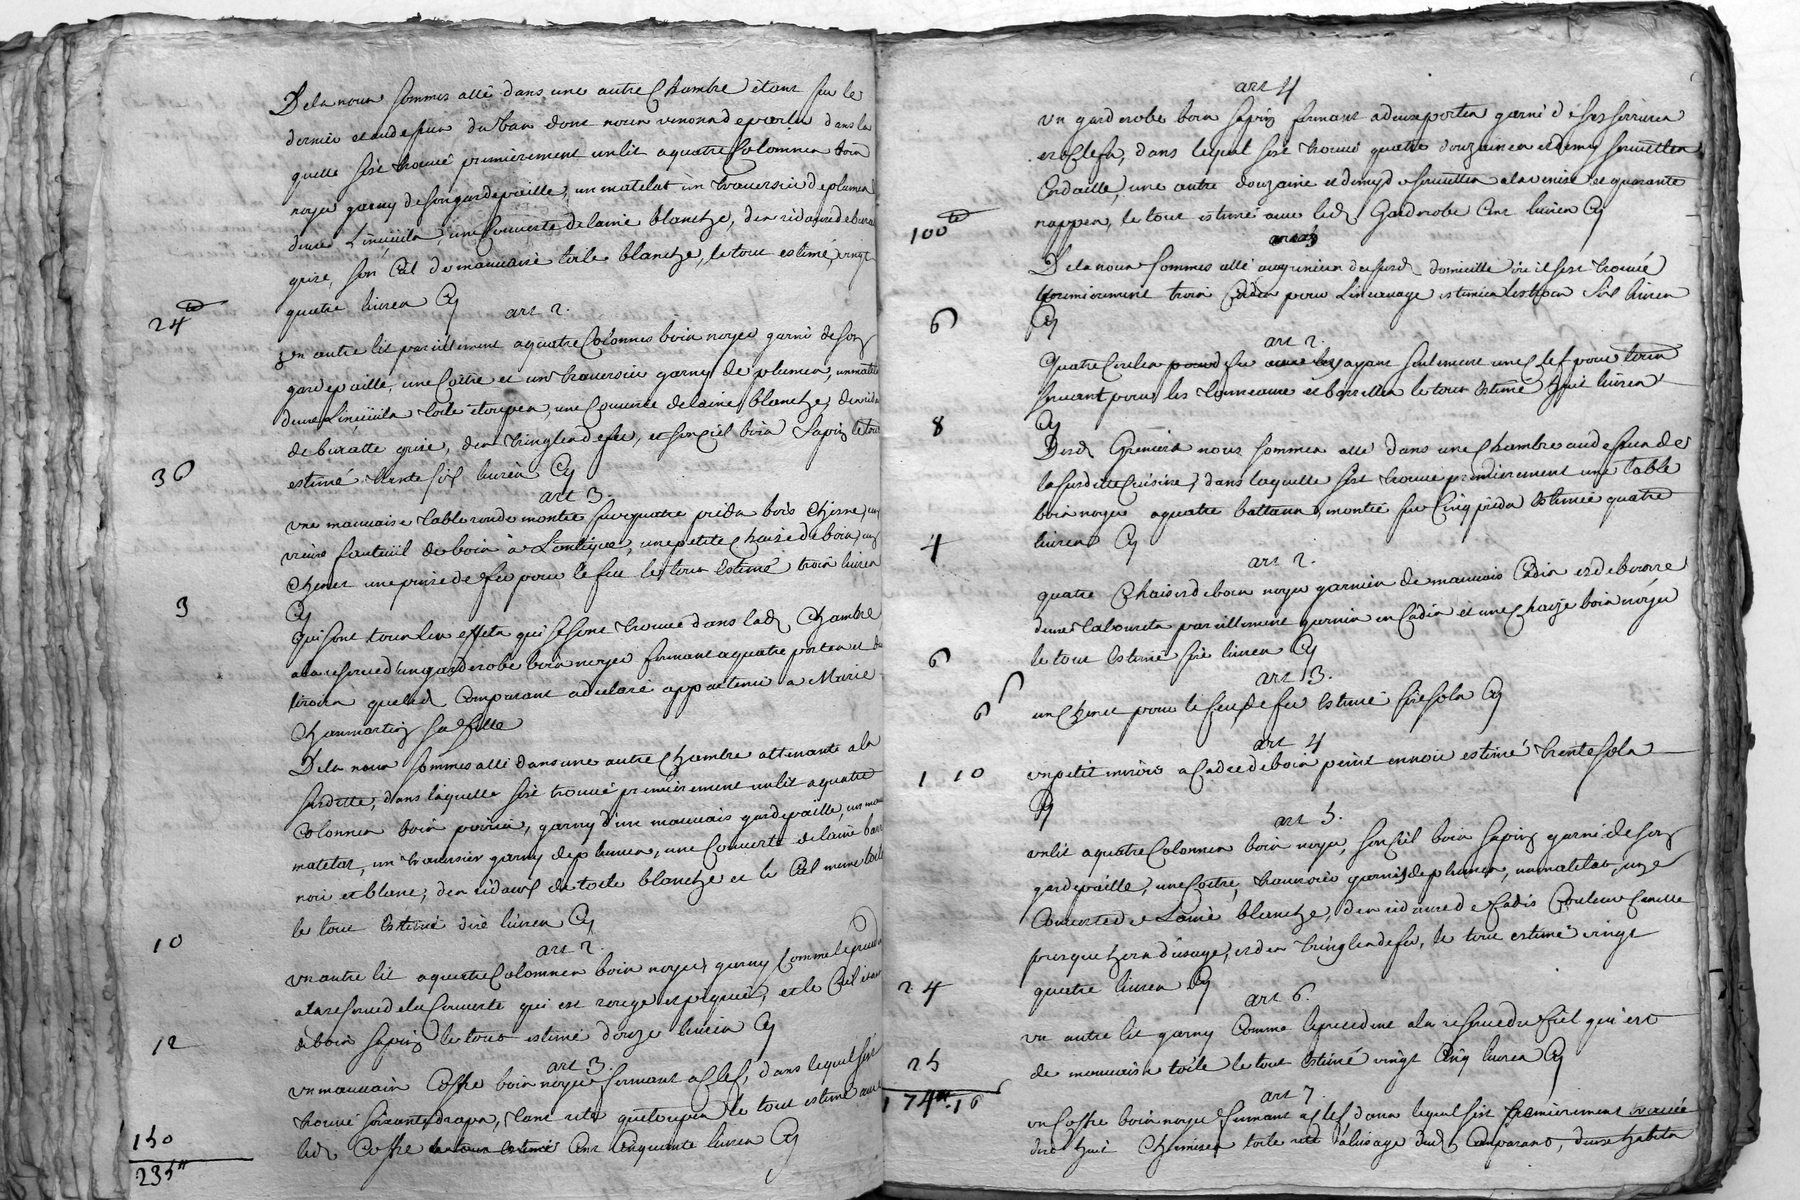 Dela nous sommes allé dans une autre Chambre étant sur le
dernier et audessus du bau dont nous venons de parler dans la
quelle s'est trouvé premièrement un lit a quatre Colonnes bois
noyer garny de son gardepaille, un matelat un traversier de plumes
deux Linceuils, une Couverte de laine blanche, des ridaux de burat
grise, son Ciel de mauvaise toile blanche, le tout estimé vingt
24ᵗᵗ quatre livres Cy
art 2.
un autre lit pareillement a quatre Colonnes bois noyer garni de son
gardepaille, une Coitre et un traversier garny de plumes, un matelat
deux Linceuils toile étoupes, une Couverte de laine blanche, des rida
de buratte grise, des tringles de fer, et son Ciel bois Sapin le tout
36 estimé trente six livres Cy
art 3.
une mauvaise table ronde montée sur quatre pieds bois Chesne, un
vieux fauteüil de bois à L'antique, une petite Chaise de bois, un
Chenet une paire de fer pour le feu le tout Estimé trois livres
3 Cy
Qui sont tous les effets qui se sont trouvé dans lad. Chambre
a la reserve d'un garderobe bois noyer fermant a quatre portes et deux
tiroirs que led. Comparant a declaré appartenir a Marie
Chanmartin sa fille
Dela nous sommes allé dans une autre Chambre attenante a la
susditte, dans laquelle s'est trouvé premièrement un lit a quatre
Colonnes bois poirier, garny d'un mauvais gardepaille, un mau
matelat, un traversier garny de plumes, une Couverte de laine barré
noir et blanc, des ridaux de toile blanche et le Ciel meme toile
10 le tout Estimé dix livres Cy
art 2.
un autre lit a quatre Colonnes bois noyer, garny Comme le preced
a la reserve de la Couverte qui est rouge et piquée, et le Ciel étant
12 de bois Sapin le tout estimé douze livres Cy
art 3.
un mauvais Coffre bois noyer fermant a Clef, dans lequel s'est
trouvé soixante draps, tant rite qu'étoupes le tout estimé avec
150 led. Coffre le tout estimé Cent Cinquante livres Cy
235ᵗᵗ
art 4
un garderobe bois Sapin fermant a deux portes garni de ses serrures
et Clefs, dans lequel s'est trouvé quatre douzaines et demy serviettes
Cordaille, une autre douzaine et demy de serviettes a la venise et quarante
100ᵗᵗ nappes, le tout estimé avec led. Garderobe Cent livres Cy
Dela nous sommes allé au grenier du susd. domicille où il s'est trouvé
premierement trois Cadis pour L'incuvage estimées les trois Six livres
6 Cy
art 2.
Quatre Cercles pour de fer ayant seulement une Clef pour tous
servant pour les tonneaux et barilles le tout Estimé huit livres
8 Cy
Dusd. Greniers nous sommes allé dans une Chambre audessus de
la susditte Cuisine, dans laquelle s'est trouvé premierement une table
bois noyer a quatre battans, montée sur Cinq pieds Estimée quatre
4 livres Cy
art 2.
quatre Chaises de bois noyer garnies de mauvais Cadis et de bourre
deux tabourets pareillement garnis en Cadis et une Chaise bois noyer
6 le tout Estimé six livres Cy
art 3.
6ˢ un Chenet pour le feu de fer Estimé six sols Cy
art 4
1 10 un petit miroir a Cadre de bois peint en noir estimé trente sols
Cy
art 5.
un lit a quatre Colonnes bois noyer, son Ciel bois Sapin garni de son
gardepaille, une Coitre, traversier garnis de plumes, un matelat, une
Couverte de Laine blanche, des ridaux de Cadis Couleur Canelle
presque hors d'usage, et des tringles de fer, le tout estimé vingt
24 quatre livres Cy
art 6.
un autre lit garny Comme le precedent a la reserve du Ciel qui est
25 de mauvaise toile le tout Estimé vingt Cinq livres Cy
174ᵗᵗ.16
art 7.
un Coffre bois noyer fermant a Clef dans lequel s'est premierement trouvé
dix huit Chemises toile rite à l'usage dud. Comparant, deux habits